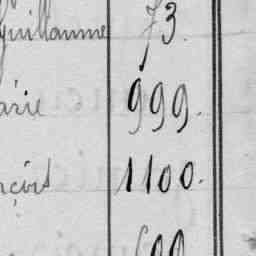 Guillaume 73.
arie 999.
nçois 1100.